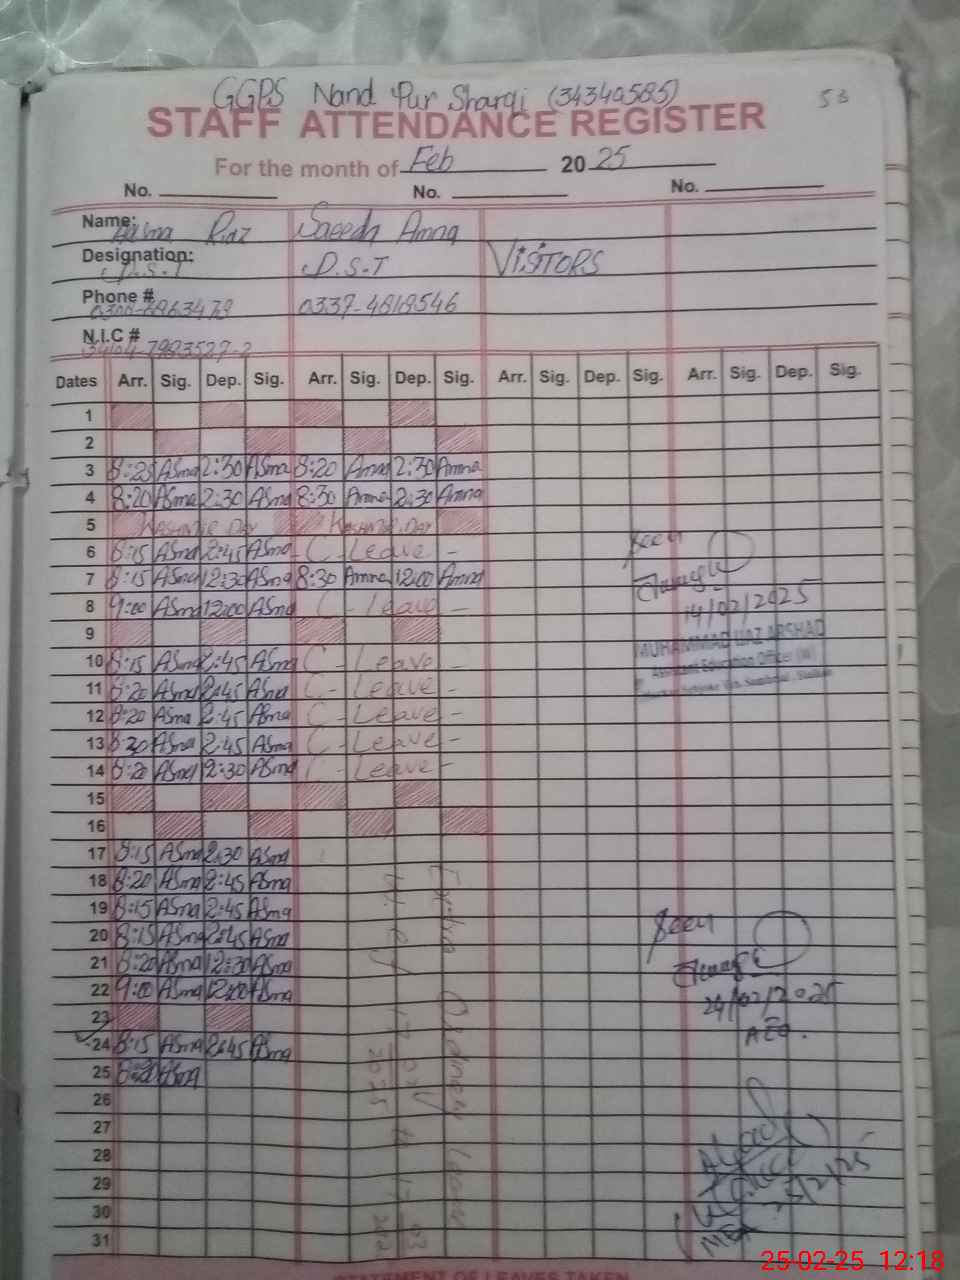 GGPS Nand Pur Sharqi (34340585)
53
STAFF ATTENDANCE REGISTER
For the month of Feb 2025
No. No. No.
Name: Asma Riaz Saeeda Amna
Designation: P.S.T P.S.T VISITORS
Phone # 0337-4818546
N.I.C #
Dates Arr. Sig. Dep. Sig. Arr. Sig. Dep. Sig. Arr. Sig. Dep. Sig. Arr. Sig. Dep. Sig.
1
2
3 8:25 Asma 2:30 Asma 8:20 Amna 2:30 Amna
4 8:20 Asma 2:30 Asma 8:30 Amna 2:30 Amna
5 KASHMIR DAY KASHMIR DAY
6 8:15 Asma 2:45 Asma C - Leave -
Seen
7 8:15 Asma 12:30 Asma 8:30 Amna 12:00 Amna
14/02/2025
8 9:00 Asma 12:00 Asma C - Leave -
9
MUHAMMAD IJAZ ARSHAD
10 8:15 Asma 2:45 Asma C - Leave -
Assistant Education Officer (W)
11 8:20 Asma 2:45 Asma C - Leave -
12 8:20 Asma 2:45 Asma C - Leave -
13 8:20 Asma 2:45 Asma C - Leave -
14 8:20 Asma 2:30 Asma C - Leave -
15
16
17 8:15 Asma 2:30 Asma
18 8:20 Asma 2:45 Asma
19 8:15 Asma 2:45 Asma
20 8:15 Asma 2:45 Asma
Seen
21 8:20 Asma 12:30 Asma
22 9:00 Asma 12:00 Asma
24/02/2025
23
AEO.
24 8:15 Asma 2:45 Asma
25 8:20 Asma
26
27
28
29
30
31
Extra Ordinary Leave
STATEMENT OF LEAVES TAKEN
25-02-25 12:18